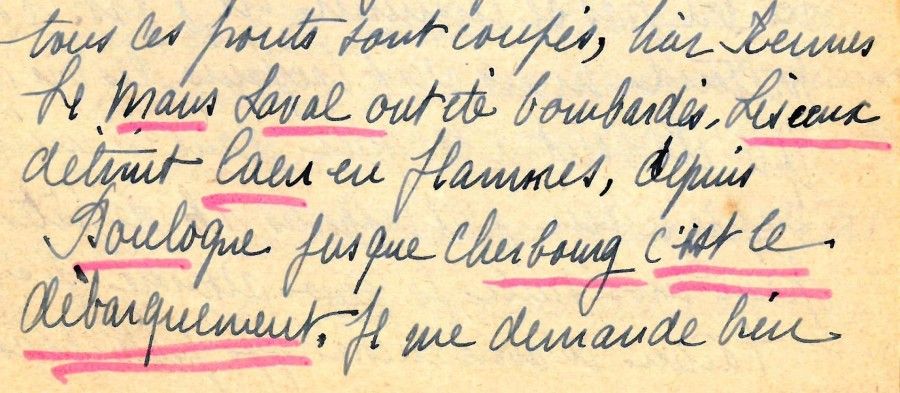 tous ces ponts sont coupés, hier Rennes
Le Mans Laval ont été bombardés, Lisieux
détruit Caen en flammes, depuis
Boulogne jusque Cherbourg c'est le
débarquement. Je me demande bien